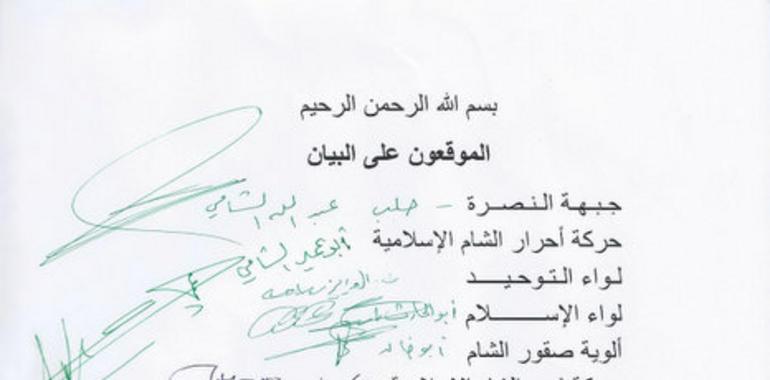 بسم الله الرحمن الرحيم
الموقعون على البيان
جبهة النصرة - حلب عبد الله الشامي
حركة أحرار الشام الإسلامية أبو عمير الشامي
لواء التوحيد
لواء الإسلام
ألوية صقور الشام أبو خالد